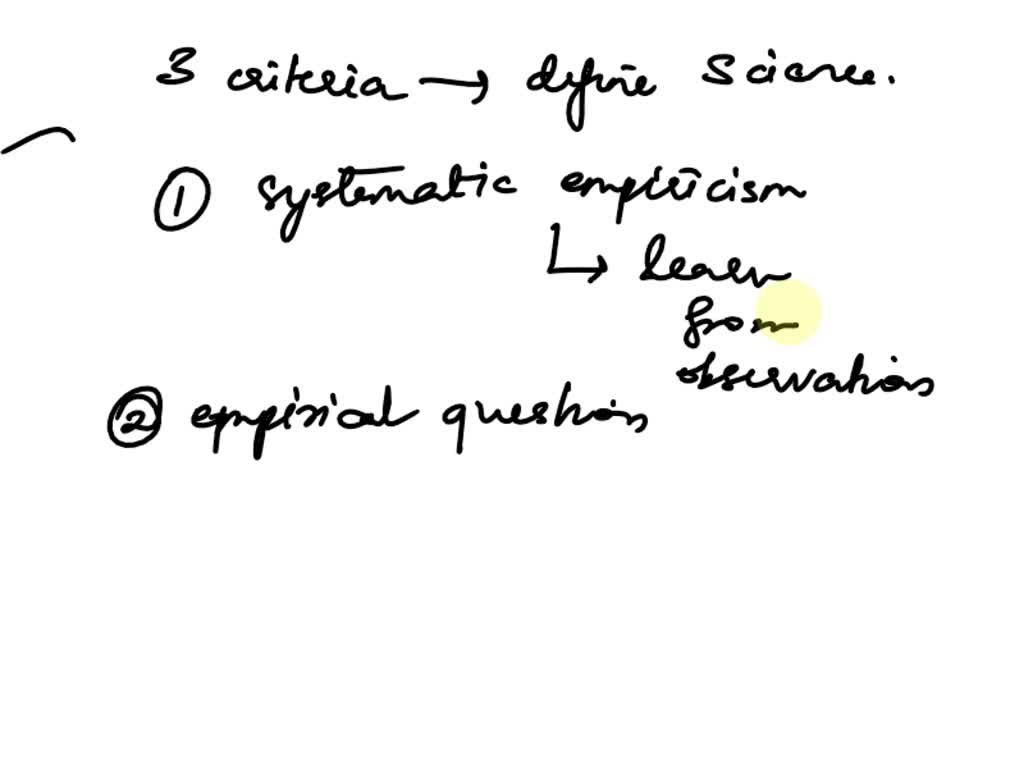 3 criteria → define science.
① systematic empiricism
↳ learn
from
observations
② empirical questions